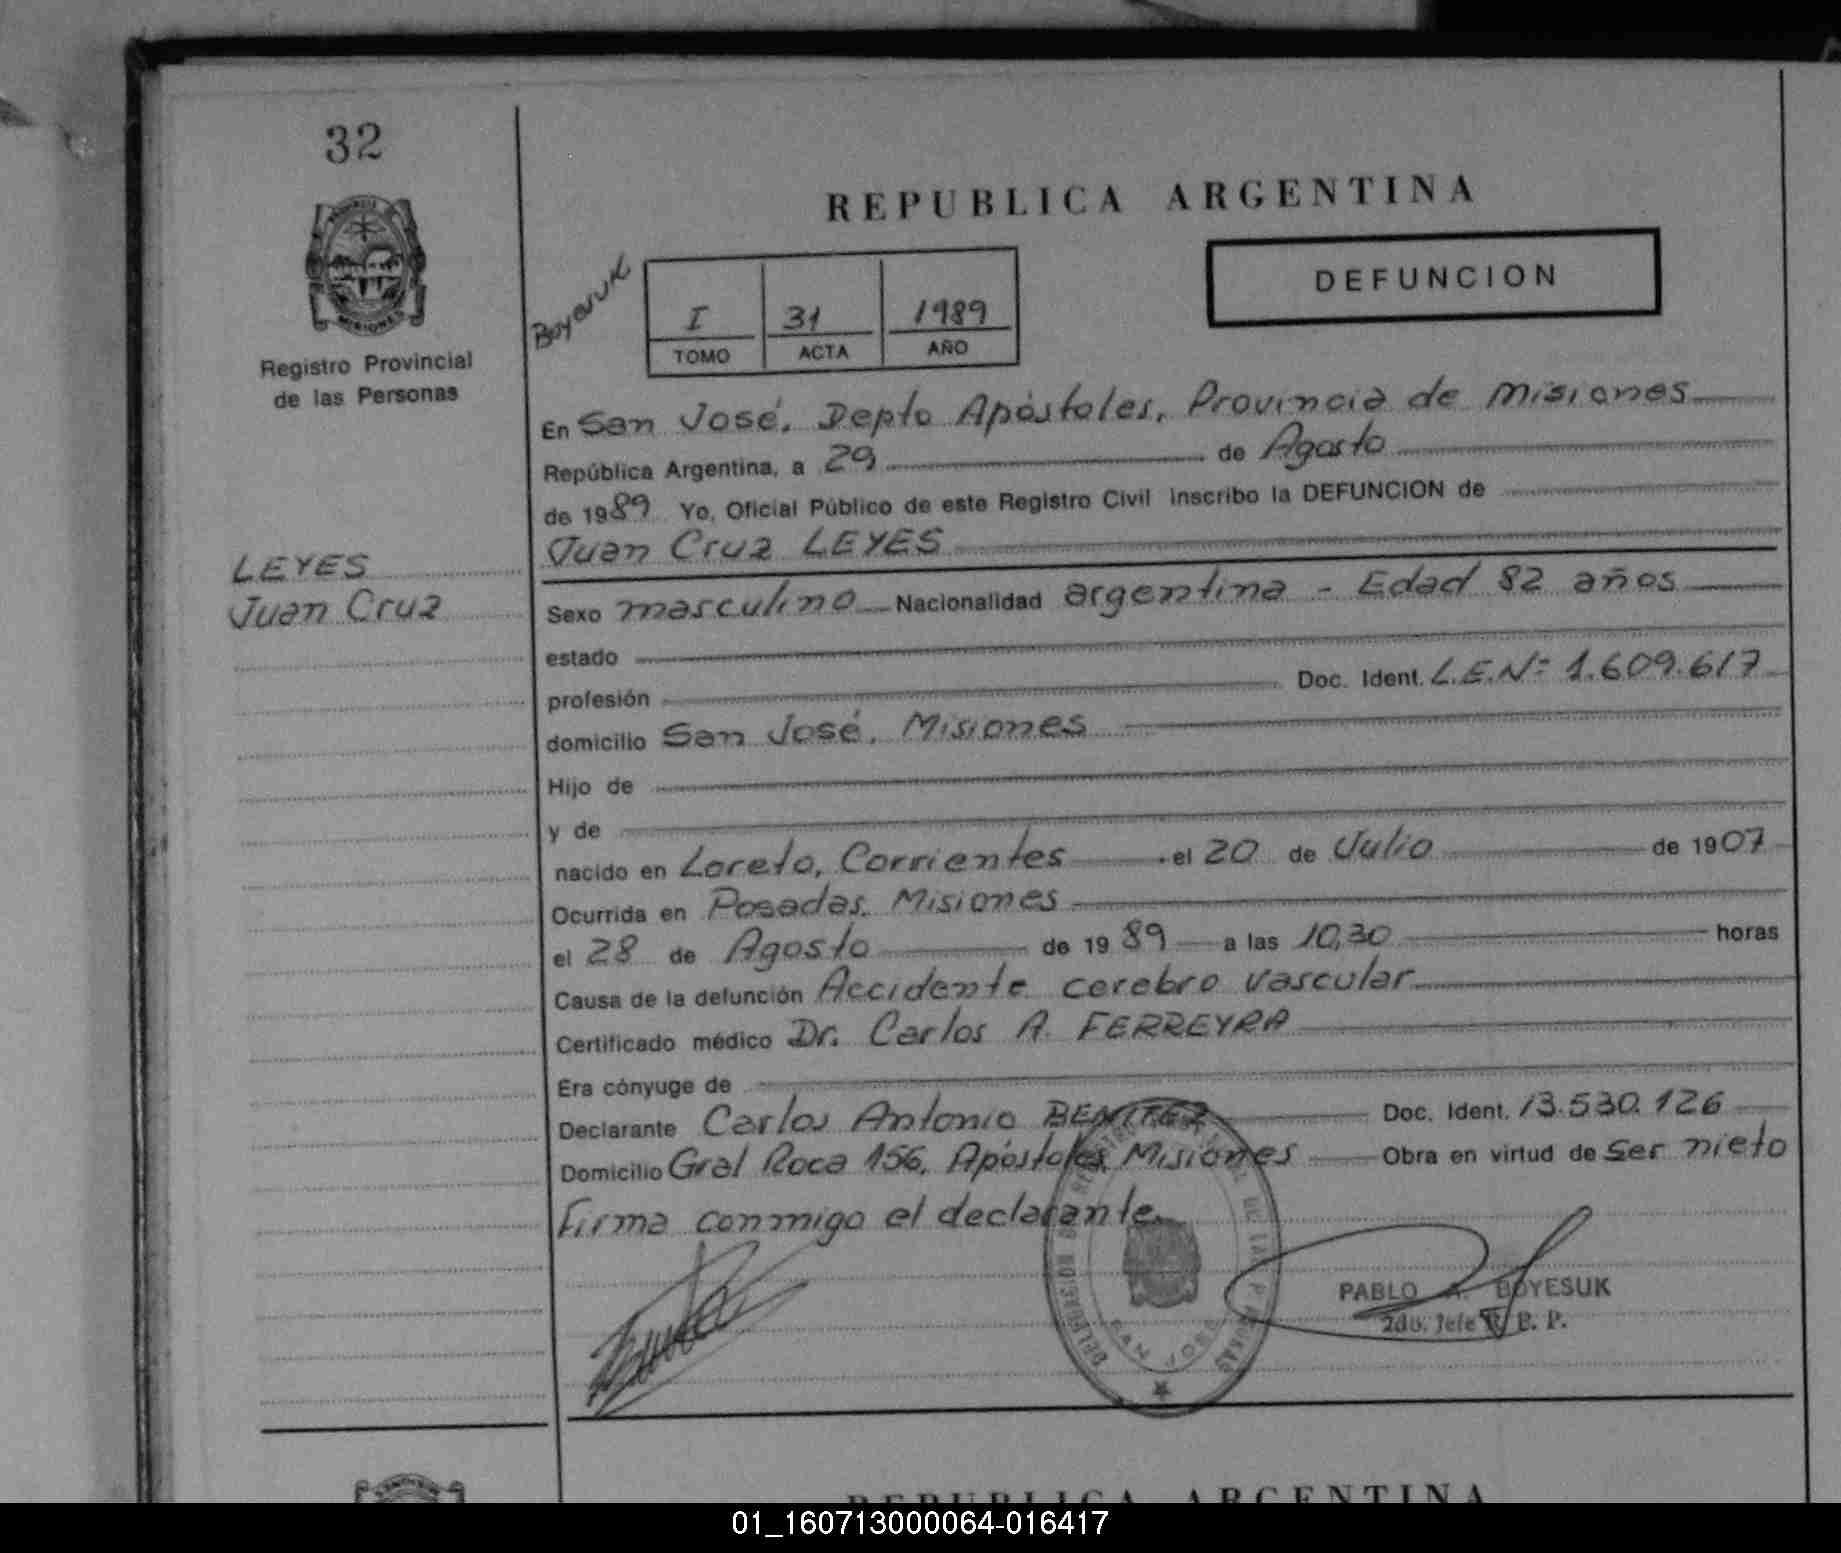 32
REPUBLICA ARGENTINA
DEFUNCION
Boyesuk
I 31 1989
TOMO ACTA AÑO
Registro Provincial
de las Personas
MISIONES
LEYES
Juan Cruz
En San José, Depto Apóstoles, Provincia de Misiones
República Argentina, a 29 de Agosto
de 1989 Yo, Oficial Público de este Registro Civil inscribo la DEFUNCION de
Juan Cruz LEYES
Sexo masculino Nacionalidad argentina - Edad 82 años
estado
profesión Doc. Ident. L.E.Nº 1.609.617
domicilio San José, Misiones
Hijo de
y de
nacido en Loreto, Corrientes el 20 de Julio de 1907
Ocurrida en Posadas, Misiones
el 28 de Agosto de 1989 a las 10,30 horas
Causa de la defunción Accidente cerebro vascular
Certificado médico Dr. Carlos A. FERREYRA
Era cónyuge de
Declarante Carlos Antonio BENITEZ Doc. Ident. 13.530.126
Domicilio Gral Roca 156, Apóstoles, Misiones Obra en virtud de ser nieto
Firma conmigo el declarante.
SAN JOSE
PABLO A. BOYESUK
2do. Jefe
REPUBLICA ARGENTINA
01_160713000064-016417